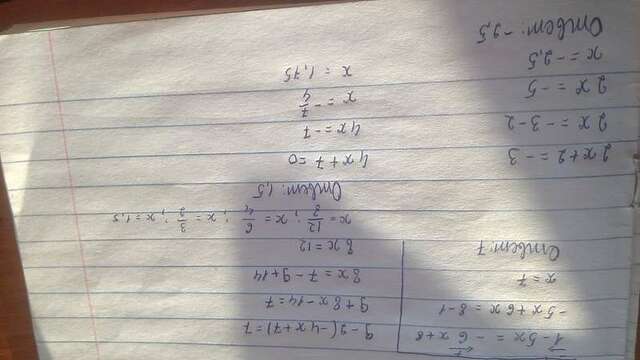 1-5x = -6x+8
-5x+6x = 8-1
x = 7
Ответ: 7
9-2(-4x+7)=7
9+8x-14=7
8x = 7-9+14
8x=12
x = 12/8 ; x = 6/4 ; x = 3/2 ; x = 1,5
Ответ: 1,5
2x+2 = -3
2x = -3-2
2x = -5
x = -2,5
Ответ: -2,5
4x+7=0
4x=-7
x = -7/4
x = 1,75